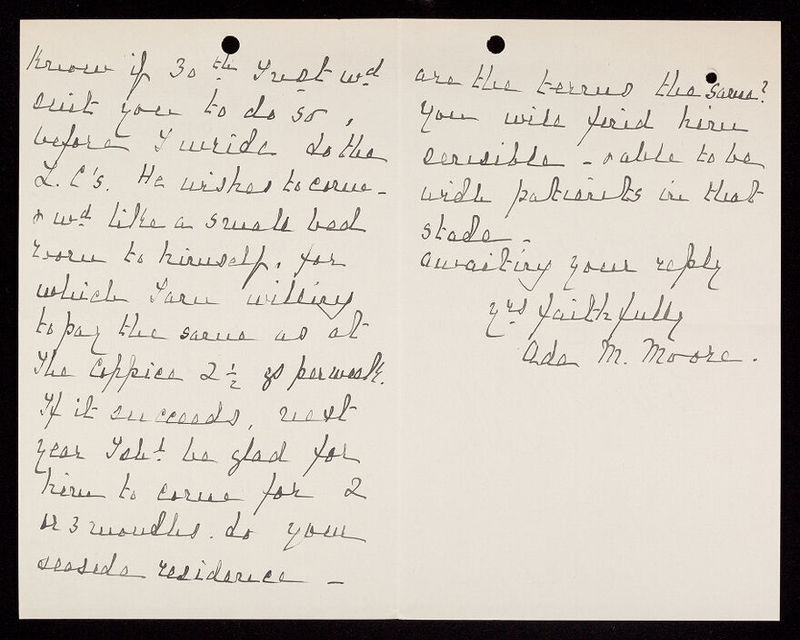 Know if 30th Inst wd
suit you to do so,
before I write to the
L. C's. He wishes to come -
& wd like a small bed
room to himself, for
which I am willing
to pay the same as at
The Coppice 2½ gs per week.
If it succeeds, next
year I shd be glad for
him to come for 2
or 3 months. to your
seaside residence -
are the terms the same?
You will find him
sensible - & able to be
with patients in that
state -
awaiting your reply
yrs faithfully
Ada M. Moore.